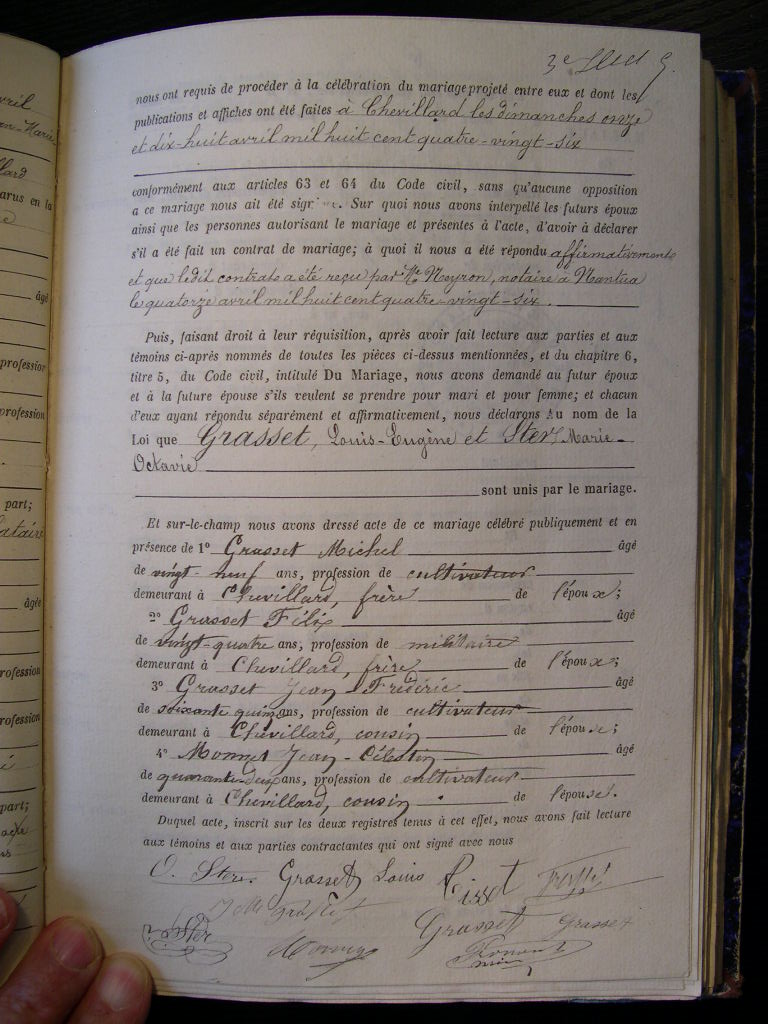 vril
en-Marie
llard
arus en la
âgé
profession
profession
part;
âgée
rofession
rofession
part;
nous ont requis de procéder à la célébration du mariage projeté entre eux et dont les
publications et affiches ont été faites à Chevillard les dimanches onze
et dix-huit avril mil huit cent quatre-vingt-six
conformément aux articles 63 et 64 du Code civil, sans qu'aucune opposition
a ce mariage nous ait été sign  e. Sur quoi nous avons interpellé les futurs époux
ainsi que les personnes autorisant le mariage et présentes à l'acte, d'avoir à déclarer
s'il a été fait un contrat de mariage; à quoi il nous a été répondu affirmativement
et que ledit contrat a été reçu par Me Neyron, notaire à Nantua
le quatorze avril mil huit cent quatre-vingt-six.
Puis, faisant droit à leur réquisition, après avoir fait lecture aux parties et aux
témoins ci-après nommés de toutes les pièces ci-dessus mentionnées, et du chapitre 6,
titre 5, du Code civil, intitulé Du Mariage, nous avons demandé au futur époux
et à la future épouse s'ils veulent se prendre pour mari et pour femme; et chacun
d'eux ayant répondu séparément et affirmativement, nous déclarons Au nom de la
Loi que Grasset, Louis-Eugène et Ster Marie-
Octavie
sont unis par le mariage.
Et sur-le-champ nous avons dressé acte de ce mariage célébré publiquement et en
présence de 1º Grasset Michel âgé
de vingt-neuf ans, profession de cultivateur
demeurant à Chevillard, frère de l'époux;
2º Grasset Félix âgé
de vingt-quatre ans, profession de militaire
demeurant à Chevillard, frère de l'époux;
3º Grasset Jean-Frédéric âgé
de soixante quinze ans, profession de cultivateur
demeurant à Chevillard, cousin de l'époux;
4º Monnet Jean-Célestin âgé
de quarante-deux ans, profession de cultivateur
demeurant à Chevillard, cousin de l'épouse.
Duquel acte, inscrit sur les deux registres tenus à cet effet, nous avons fait lecture
aux témoins et aux parties contractantes qui ont signé avec nous
O. Ster. Grasset Louis
Ster Grasset Grasset